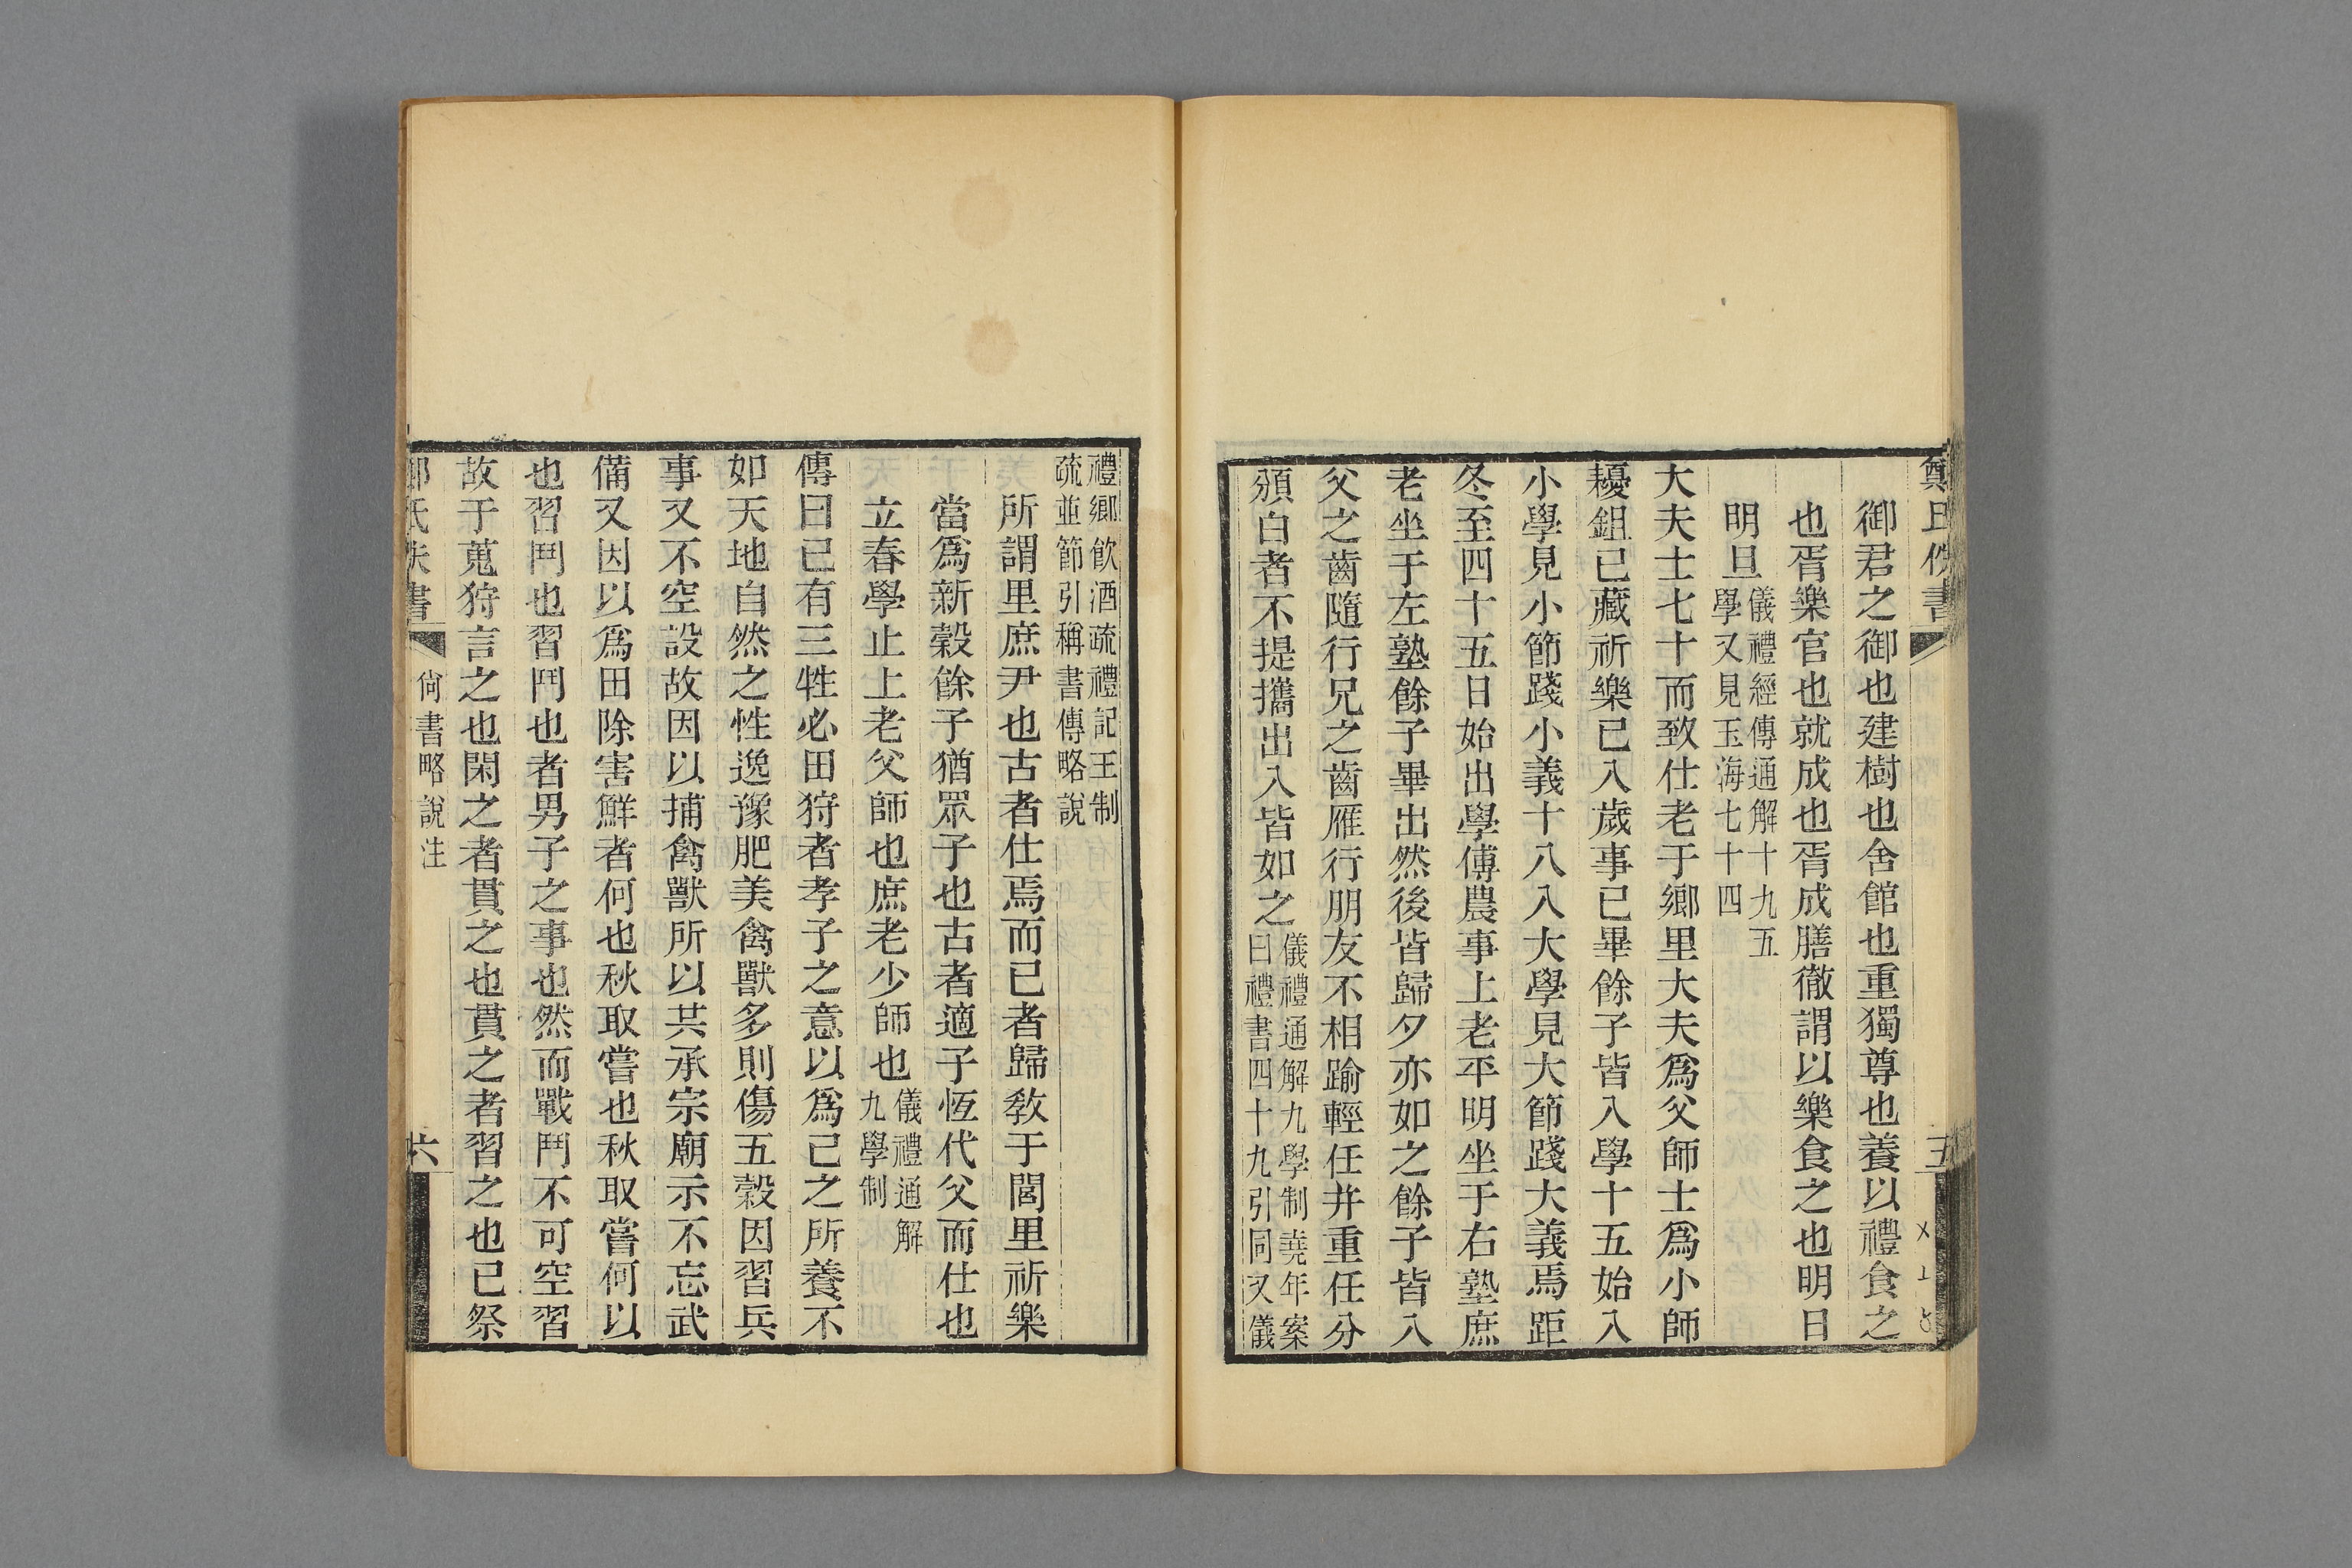 鄭氏佚書
五
御君之御也建樹也舍館也重獨尊也養以禮食之
也胥樂官也就成也胥成膳徹謂以樂食之也明日
明旦儀禮經傳通解十九五
學又見玉海七十四
大夫士七十而致仕老于鄉里大夫爲父師士爲小師
耰鉏已藏祈樂已入歲事已畢餘子皆入學十五始入
小學見小節踐小義十八入大學見大節踐大義焉距
冬至四十五日始出學傅農事上老平明坐于右塾庶
老坐于左塾餘子畢出然後皆歸夕亦如之餘子皆入
父之齒隨行兄之齒雁行朋友不相踰輕任并重任分
頒白者不提攜出入皆如之儀禮通解九學制堯年案
曰禮書四十九引同又儀
禮鄉飲酒疏禮記王制
疏並節引稱書傳略說
所謂里庶尹也古者仕焉而已者歸教于閭里祈樂
當爲新穀餘子猶眾子也古者適子恆代父而仕也
立春學止上老父師也庶老少師也儀禮通解
九學制
傳曰已有三牲必田狩者孝子之意以爲己之所養不
如天地自然之性逸豫肥美禽獸多則傷五穀因習兵
事又不空設故因以捕禽獸所以共承宗廟示不忘武
備又因以爲田除害鮮者何也秋取嘗也秋取嘗何以
也習鬥也習鬥也者男子之事也然而戰鬥不可空習
故于蒐狩言之也閑之者貫之也貫之者習之也已祭
鄭氏佚書
尙書略說注
六